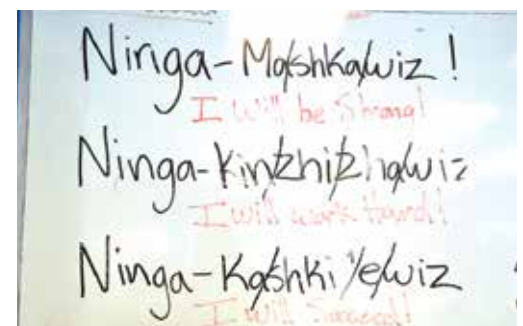 Ninga-Ma/shka/wiz !
I will be Strong!
Ninga-Kin/zhi/zha/wiz
I will work Hard!
Ninga-Ka/shki'/e/wiz
I will Succeed!